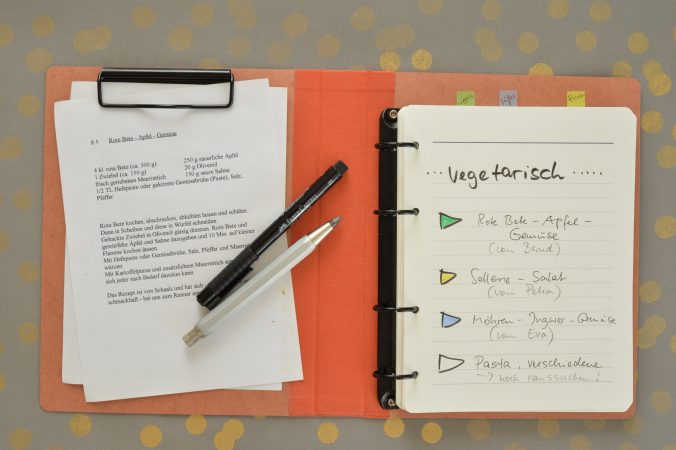 8 5 Rote Bete - Apfel - Gemüse
4 kl. rote Bete (ca. 300 g) 250 g säuerliche Äpfel
1 Zwiebel (ca. 150 g) 20 g Olivenöl
frisch geriebenen Meerrettich 150 g saure Sahne
1/2 TL Hefepaste oder gekörnte Gemüsebrühe (Paste), Salz,
Pfeffer
Rote Bete kochen, abschrecken, abkühlen lassen und schälen.
Dann in Scheiben und diese in Würfel schneiden.
Gehackte Zwiebel in Olivenöl glasig dünsten. Rote Bete und
gewürfelte Äpfel und Sahne dazugeben und 10 Min. auf kleiner
Flamme kochen lassen.
Mit Hefepaste oder Gemüsebrühe, Salz, Pfeffer und Meerret
würzen.
Mit Kartoffelpüree und zusätzlichem Meerrettich ser
sich jeder nach Bedarf dazutun kann.
Das Rezept ist von Schaals und hat sich
schmackhaft - bei uns zum Renner
FABER-CASTELL
Suppen
Süßes
Fleisch
vegetarisch
Rote Bete - Apfel -
Gemüse
(von Bernd)
Sellerie - Salat
(von Petra)
Möhren - Ingwer - Gemüse
(von Eva)
Pasta, verschiedene
→ noch raussuchen!